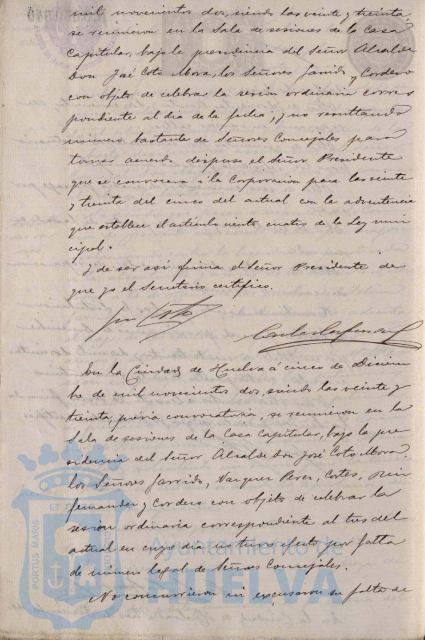 mil novecientos dos, siendo las veinte y treinta
se reunieron en la Sala de sesiones de la Casa
Capitular, bajo la presidencia del Señor Alcalde
Don José Coto Mora, los Señores Garrido y Cordero
con objeto de celebrar la sesión ordinaria corres
pondiente al día de la fecha, y no resultando
número bastante de Señores Concejales para
tomar acuerdo dispuso el Señor Presidente
que se convocara á la Corporación para las veinte
y treinta del cinco del actual con la advertencia
que establece el artículo ciento cuatro de la Ley muni
cipal.
Y de ser así firma el Señor Presidente de
que yo el Secretario certifico.
Coto
En la Ciudad de Huelva á cinco de Diciem
bre de mil novecientos dos, siendo las veinte y
treinta, previa convocatoria, se reunieron en la
Sala de sesiones de la Casa Capitular, bajo la pre
sidencia del Señor Alcalde Don José Coto Mora.
los Señores Garrido, Vazquez Perez, Cortes,
fernandez y Cordero con objeto de celebrar la
sesión ordinaria correspondiente al tres del
actual en cuyo día no tuvo efecto por falta
de número legal de Señores Concejales.
No concurrieron ni excusaron su falta de
PORTUS MARIS
Ayuntamiento de
HUELVA